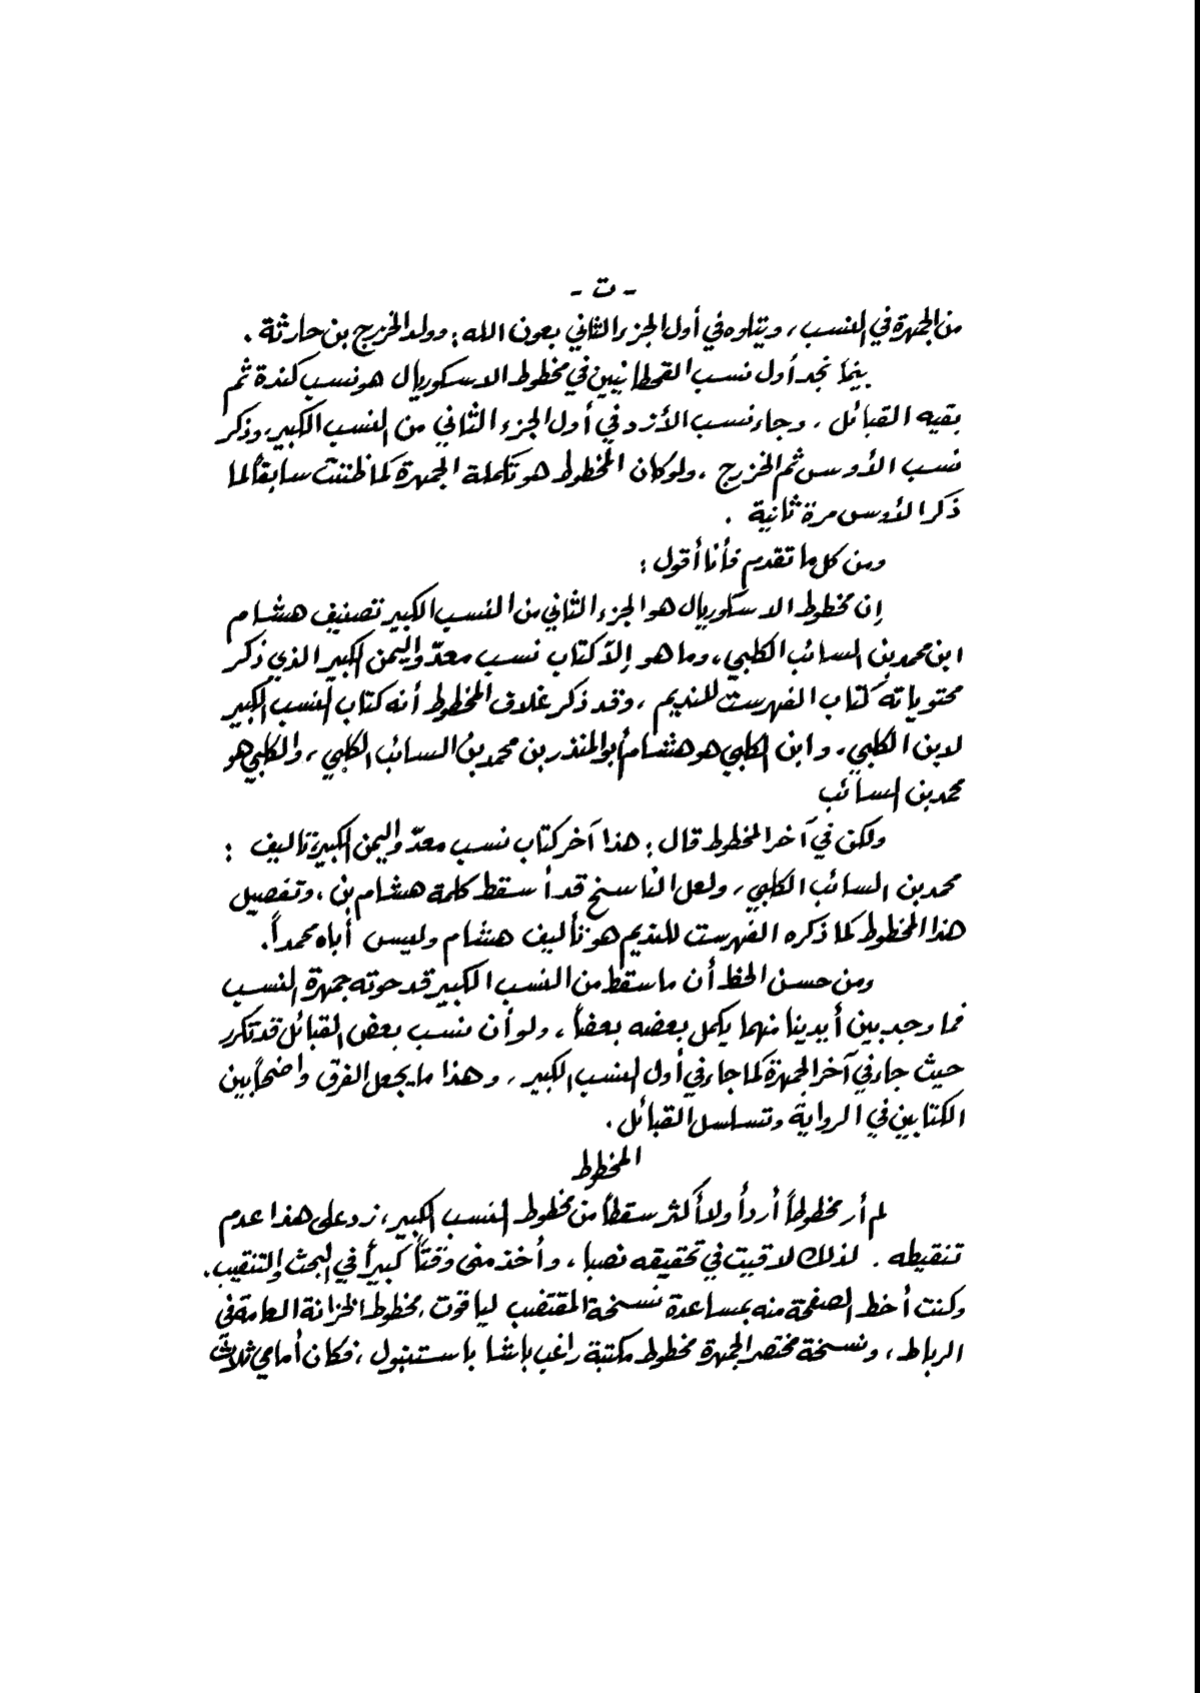 - ت -
من الجمهرة في النسب، ويتلوه في أول الجزء الثاني بعون الله: وولد الخزرج بن حارثة .
بينما نجد أول نسب القحطانيين في مخطوط الاسكوريال هو نسب كندة ثم
بقيه القبائل ، وجاء نسب الأزد في أول الجزء الثاني من النسب الكبير، وذكر
نسب الأوس ثم الخزرج ، ولو كان المخطوط هو تكملة الجمهرة كما ظننت سابقاً لما
ذكر الأوس مرة ثانية .
ومن كل ما تقدم فأنا أقول :
إن مخطوط الاسكوريال هو الجزء الثاني من النسب الكبير تصنيف هشام
ابن محمد بن السائب الكلبي، وما هو إلا كتاب نسب معدّ واليمن الكبير الذي ذكر
محتوياته كتاب الفهرست للنديم ، وقد ذكر غلاف المخطوط أنه كتاب النسب الكبير
لابن الكلبي، وابن الكلبي هو هشام أبو المنذر بن محمد بن السائب الكلبي ، والكلبي هو
محمد بن السائب
ولكن في آخر المخطوط قال : هذا آخر كتاب نسب معدّ واليمن الكبير تاليف :
محمد بن السائب الكلبي، ولعل الناسخ قد أسقط كلمة هشام بن ، وتفصيل
هذا المخطوط كما ذكره الفهرست للنديم هو تأليف هشام وليس أباه محمداً.
ومن حسن الحظ أن ما سقط من النسب الكبير قد حوته جمهرة النسب
فما وجد بين أيدينا منهما يكمل بعضه بعضاً ، ولو أن نسب بعض القبائل قد تكرر
حيث جاء في آخر الجمهرة كما جاء في أول النسب الكبير ، وهذا ما يجعل الفرق واضحاً بين
الكتابين في الرواية وتسلسل القبائل .
المخطوط
لم أر مخطوطاً أردأ ولا أكثر سقطاً من مخطوط النسب الكبير، زد على هذا عدم
تنقيطه . لذلك لاقيت في تحقيقه نصبا ، وأخذ منى وقتاً كبيراً في البحث والتنقيب.
وكنت أخط الصفحة منه بمساعدة نسخة المقتضب لياقوت ، مخطوط الخزانة العامة في
الرباط ، ونسخة مختصر الجمهرة مخطوط مكتبة راغب باشا باستنبول ، فكان أمامي ثلاث